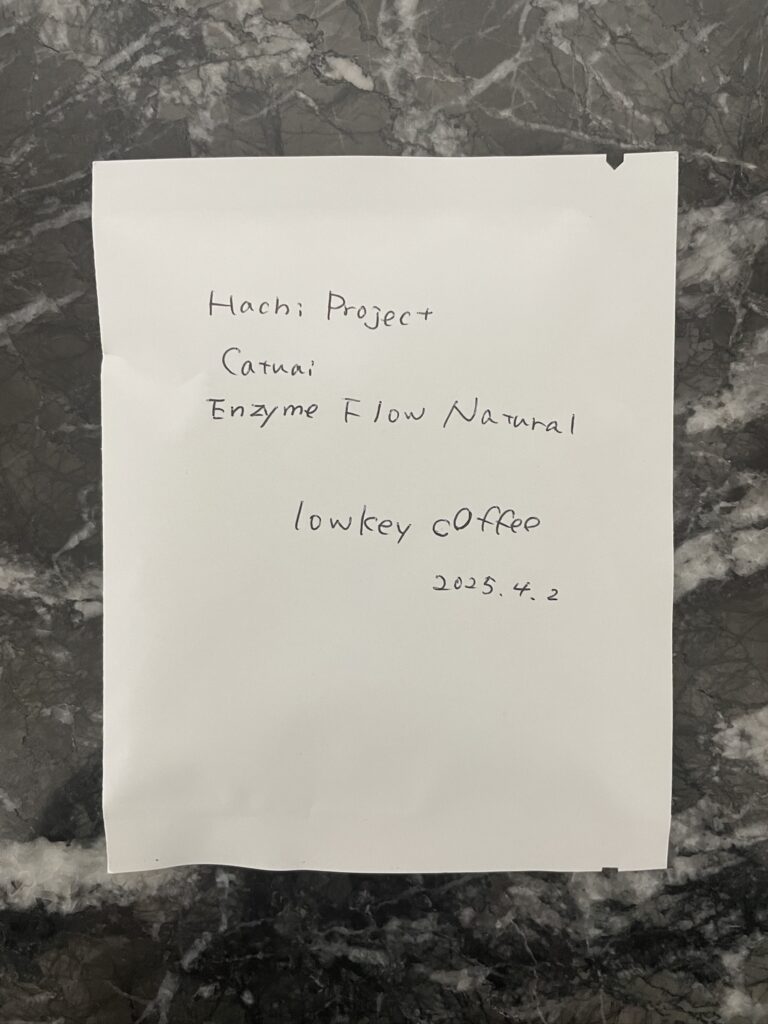 Hachi Project
Catuai
Enzyme Flow Natural
lowkey coffee
2025.4.2